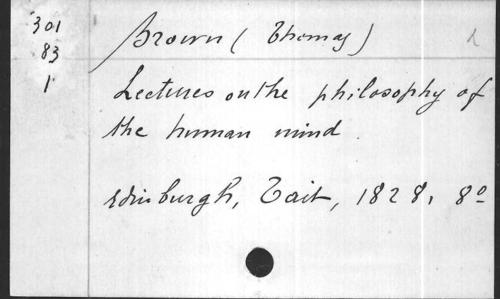 301
83
1
Brown (Thomas)
Lectures on the philosophy of
the human mind.
Edinburgh, Tait, 1828, 8º